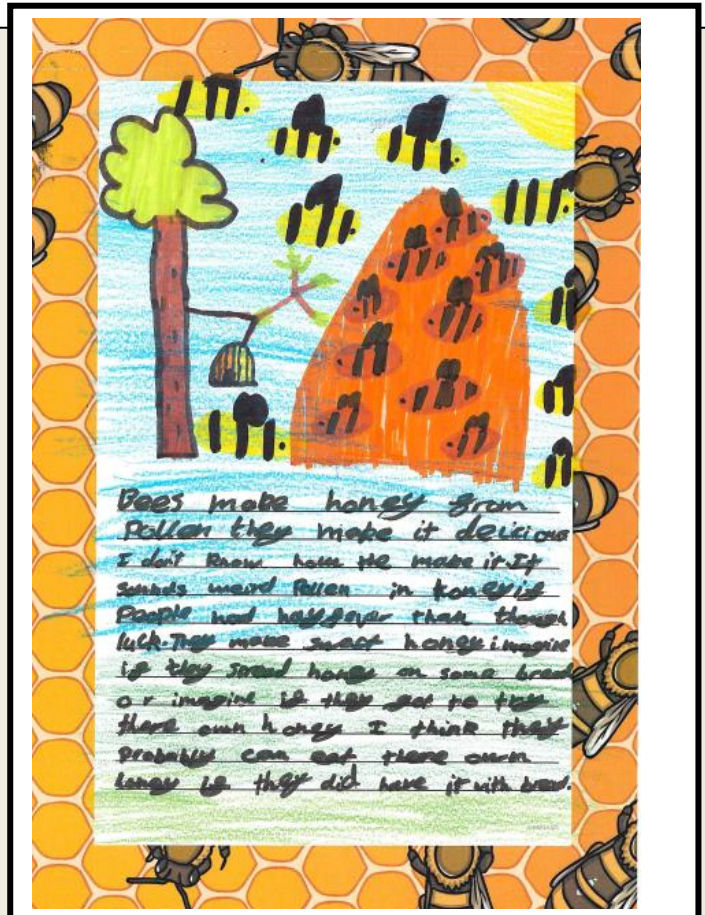 Bees make honey from
Pollen they make it delicious
I don't know how the make it.It
sounds weird Pollen in honey if
People had hayfever than though
luck.They make sweet honey imagine
if they spread honey on some bread
or imagine if they got to try
there own honey I think they
Probably can eat there own
honey if they did have it with bread.